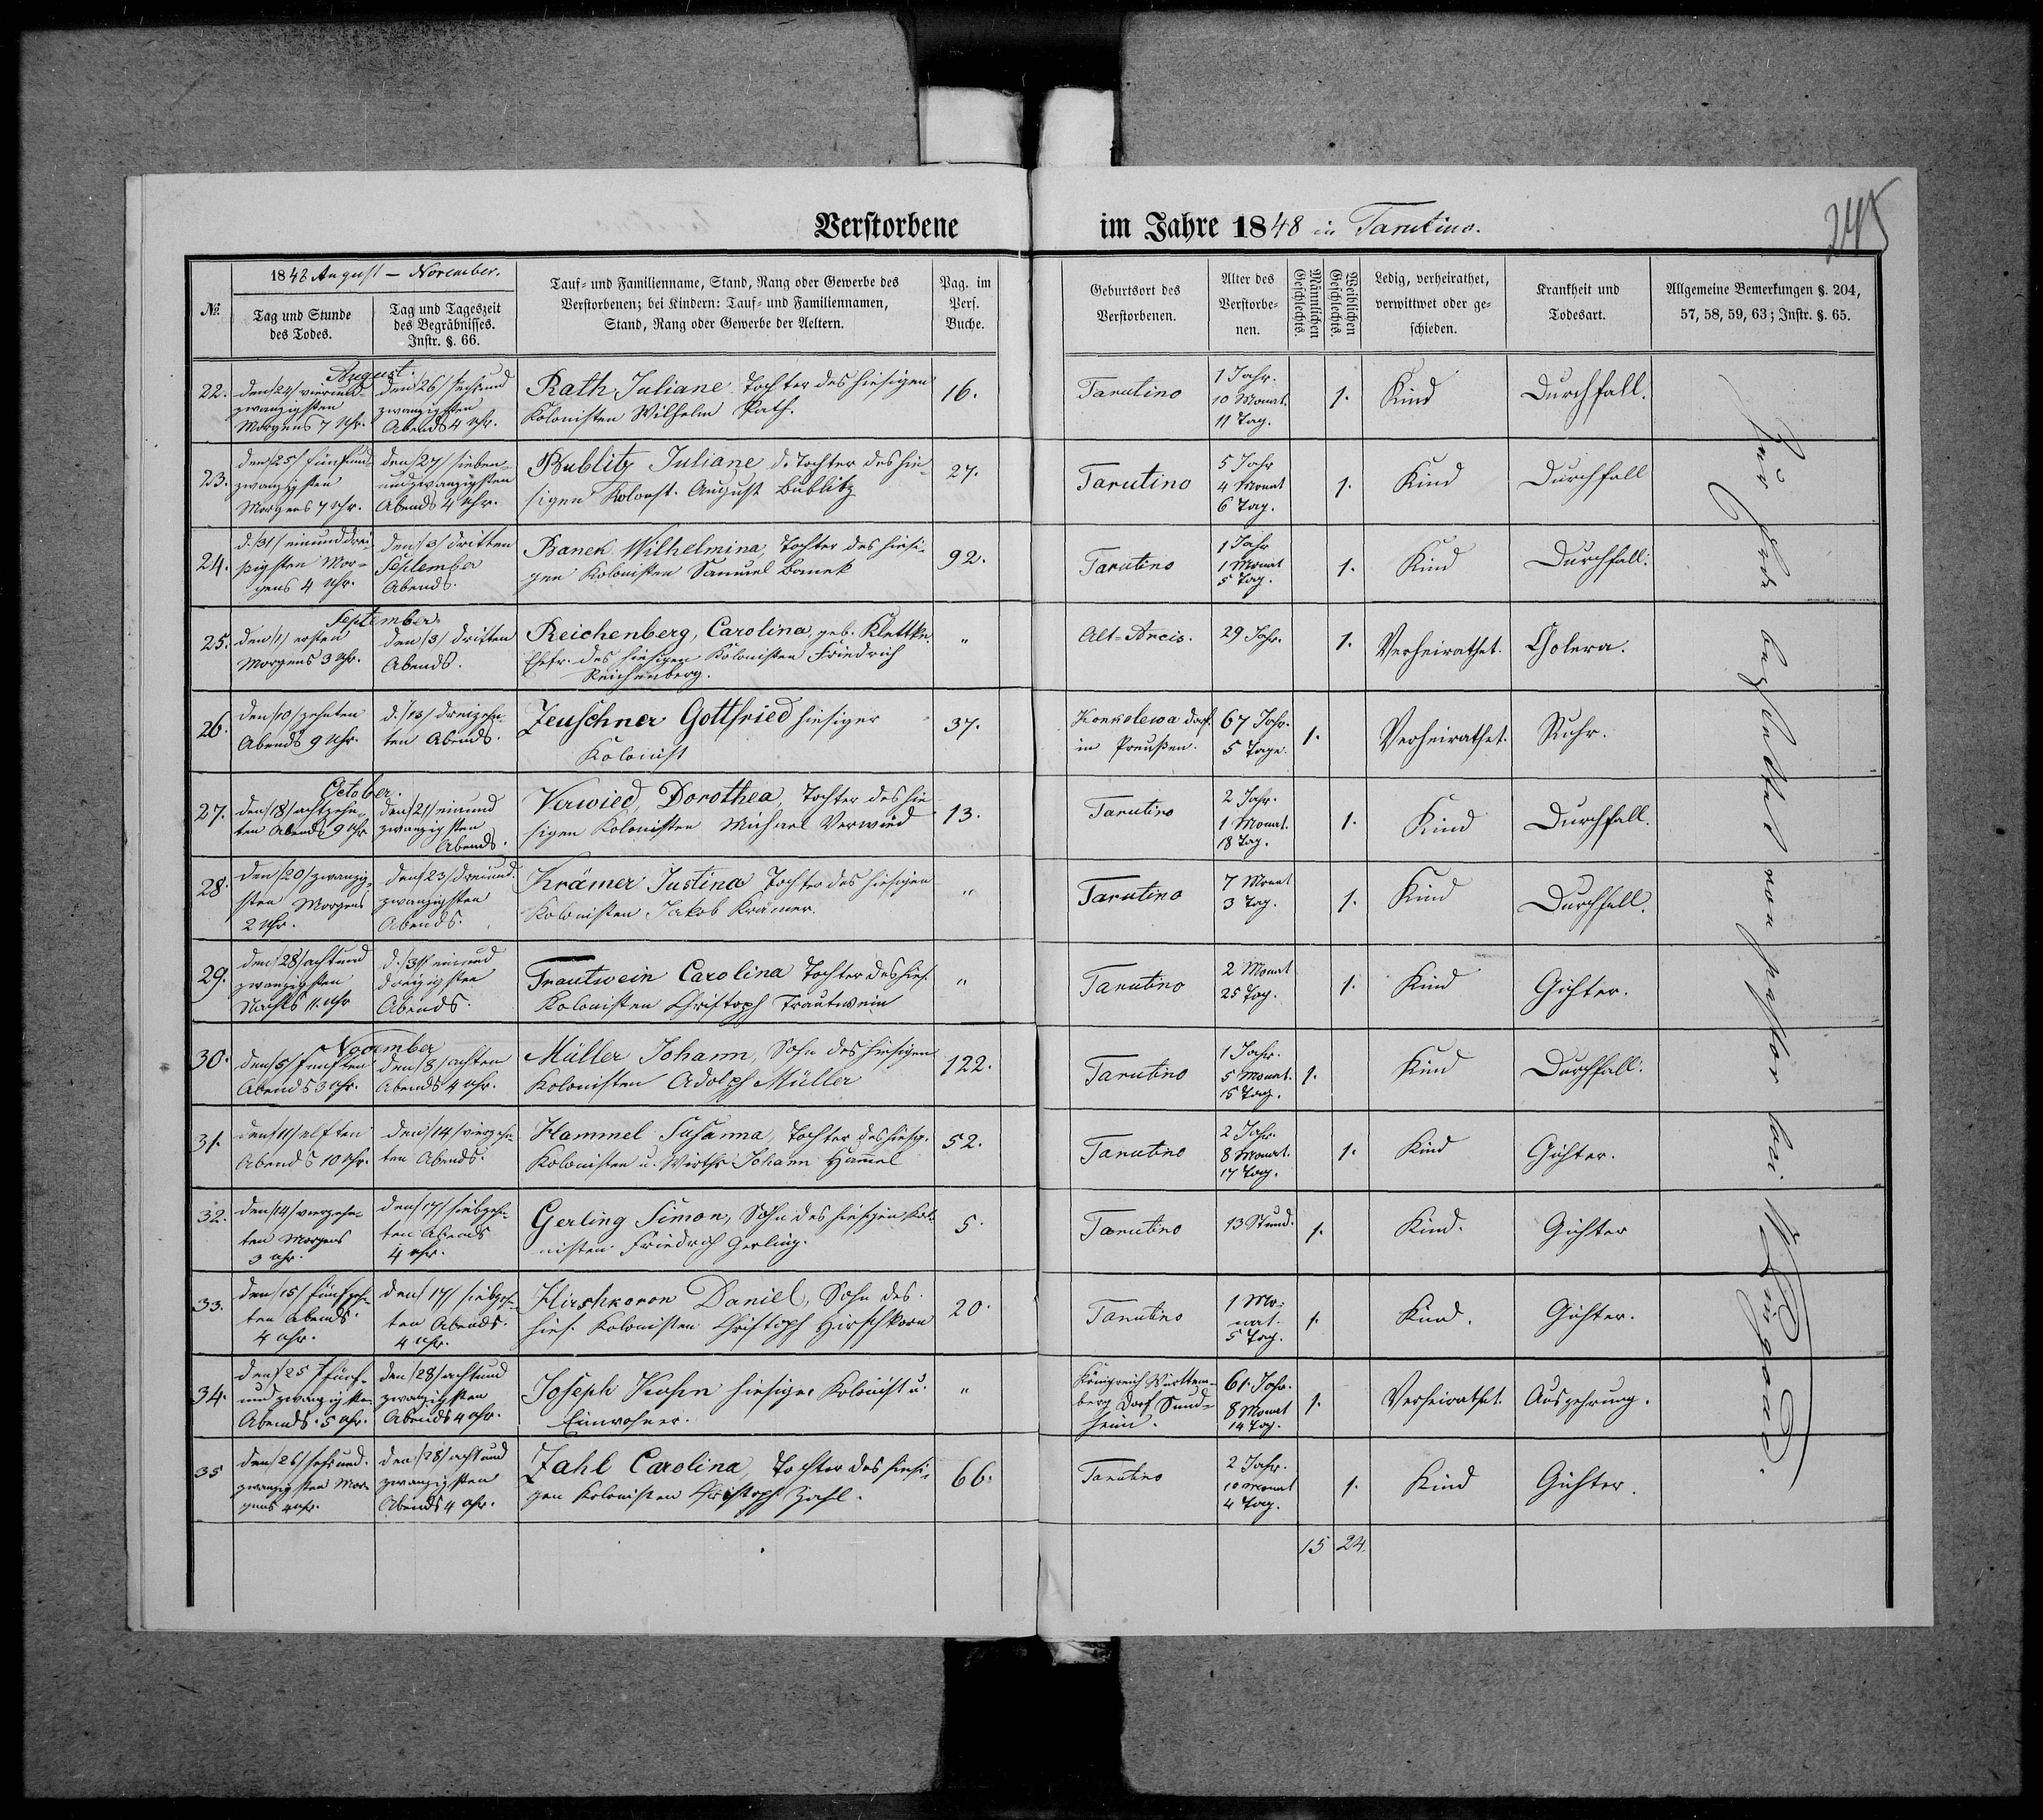 Verstorbene im Jahre 1848 in Tarutino.
245
№
1848 August – November.
Tag und Stunde des Todes.
Tag und Tageszeit des Begräbnisses. Instr. §. 66.
Tauf- und Familienname, Stand, Rang oder Gewerbe des
Verstorbenen; bei Kindern: Tauf- und Familiennamen,
Stand, Rang oder Gewerbe der Aeltern.
Pag. im Pers. Buche.
Geburtsort des Verstorbenen.
Alter des Verstorbenen.
Männlichen Geschlechts.
Weiblichen Geschlechts.
Ledig, verheirathet, verwittwet oder geschieden.
Krankheit und Todesart.
Allgemeine Bemerkungen §. 204, 57, 58, 59, 63; Instr. §. 65.
August.
22. den /24/ vierund- zwanzigsten Morgens 7 Uhr. den /26/ sechsund zwanzigsten Abends 4 Uhr. Rath Juliane Tochter des hiesigen Kolonisten Wilhelm Rath. 16. Tarutino 1 Jahr. 10 Monat. 11 Tag. 1. Kind Durchfall.
23. den /25/ fünfund zwanzigsten Morgens 7 Uhr. den /27/ sieben- undzwanzigsten Abends 4 Uhr. Bublitz Juliane d. Tochter des hie- sigen Kolonist. August Bublitz 27. Tarutino 5 Jahr 4 Monat 6 Tag. 1. Kind Durchfall
24. d. /31/ einunddrei- ßigsten Mor- gens 4 Uhr. den /3/ dritten September Abends. Banek Wilhelmina, Tochter des hiesi- gen Kolonisten Samuel Banek 92. Tarutino 1 Jahr 1 Monat 5 Tag. 1. Kind Durchfall.
September.
25. den /1/ ersten Morgens 3 Uhr. den /3/ dritten Abends. Reichenberg, Carolina, geb. Klettke. Ehefr. des hiesigen Kolonisten Friedrich Reichenberg. " Alt-Arcis. 29 Jahr. 1. Verheirathet. Cholera.
26. den /10/ zehnten Abends 9 Uhr. d. /13/ dreizehn- ten Abends. Zeuschner Gottfried hiesiger Kolonist 37. Konkolewa dorf. in Preußen. 67 Jahr. 5 Tage. 1. Verheirathet. Ruhr.
October.
27. den /18/ achtzehn- ten Abends 9 Uhr den /21/ einund zwanzigsten Abends. Verwied, Dorothea, Tochter des hie sigen Kolonisten Michael Verwied 13. Tarutino 2 Jahr. 1 Monat. 18 Tag. 1. Kind Durchfall.
28. den /20/ zwanzig- sten Morgens 2 Uhr. den /23/ dreiund- zwanzigsten Abends. Krämer Justina Tochter des hiesigen Kolonisten Jakob Krämer. " Tarutino 7 Monat 3 Tag. 1. Kind Durchfall.
29. den /28/ achtund zwanzigsten Nachts 11. Uhr d. /31/ einund dreizigsten Abends. Trautwein Carolina Tochter des hies. Kolonisten Christoph Trautwein " Tarutino 2 Monat 25 Tag. 1. Kind Gichter.
November
30. den /5/ fünften Abends 3 Uhr. den /8/ achten Abends 4 Uhr. Müller Johann, Sohn des hiesigen Kolonisten Adolph Müller 122. Tarutino 1 Jahr. 5 Monat. 15 Tag. 1. Kind Durchfall.
31. den /11/ elften Abends 10 Uhr. den /14/ vierzehn- ten Abends. Hammel Susanna, Tochter des hiesig. Kolonisten u. Wirths Johann Hamel 52. Tarutino 2 Jahr. 8 Monat. 17 Tag. 1. Kind Gichter.
32. den /14/ vierzehn- ten Morgens 3 Uhr. den /17/ siebzehn- ten Abends 4 Uhr. Gerling Simon, Sohn des hiesigen Kolo nisten Friedrich Gerling. 5. Tarutino 13 Stund. 1. Kind. Gichter
33. den /15/ fünfzehn- ten Abends. 4 Uhr. den /17/ siebzehn- ten Abends. 4 Uhr. Hirshkoron Daniel, Sohn des hies. Kolonisten Christoph Hirschkorn 20. Tarutino 1 Mo- nat. 5 Tag. 1. Kind. Gichter.
34. den /25/ fünf- und zwanzigsten Abends. 5 Uhr. den /28/ achtund zwanzigsten Abends 4 Uhr. Joseph Kohn hiesiger Kolonist u. Einwohner. " Königreich Württem- berg Dorf Sund- heim. 61. Jahr. 8 Monat 14 Tag. 1. Verheirathet. Auszehrung.
35 den /26/ sechsund- zwanzigsten Mor- gens 4 Uhr. den /28/ achtund zwanzigsten Abends 4 Uhr. Zahl Carolina, Tochter des hiesi- gen Kolonisten Christoph Zahl. 66. Tarutino 2 Jahr. 10 Monat 4 Tag. 1. Kind Gichter.
15 24